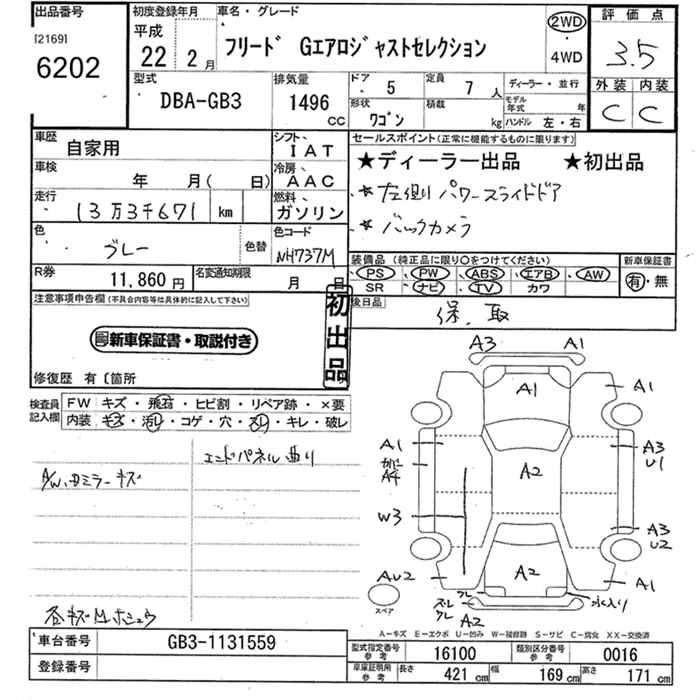 出品番号
[2169]
6202
初度登録年月
平成
22年 2月
車名・グレード
フリード Gエアロジャストセレクション
2WD
・
4WD
評価点
3.5
外装 内装
C C
型式
DBA-GB3
排気量
1496
CC
ドア
5
定員
7人
ディーラー・並行
形状
ワゴン
積載
kg
モデル年式 年
ハンドル 左・右
車歴
自家用
シフト
IAT
車検
年 月( 日)
冷房
AAC
走行
13万3千671 km
燃料
ガソリン
色
グレー
色替
色コード
NH737M
R券
11,860円
名変通知期限
月 日
セールスポイント(正常に機能するものに限ります)
★ディーラー出品 ★初出品
★左側パワースライドドア
★バックカメラ
装備品(純正品に限り○をつけてください)
新車保証書
PS・PW・ABS・エアB・AW
SR ナビ・TV カワ
有・無
後日品
保、取
注意事項申告欄(不具合内容等は具体的に記入して下さい)
新車保証書・取説付き
初出品
修復歴 有〔箇所
検査員記入欄
FW キズ・飛石・ヒビ割・リペア跡・×要
内装 キズ・汚れ・コゲ・穴・スレ・キレ・破レ
エンドパネル曲り
A/W、ドミラーキズ
各キズ有 ホシュウ
A3
A1
A1
A1
A1
A3
U1
A4
A2
W3
A3
U2
AU2
A2
A1
スペア
スレ
クレ
クレ
A2
水入り
A-キズ E-エクボ U-凹み W-補修跡 S-サビ C-腐蝕 XX-交換済
車台番号
GB3-1131559
登録番号
型式指定番号
参考
16100
類別区分番号
参考
0016
車庫証明用
参考
長さ
421cm
幅
169cm
高さ
171cm